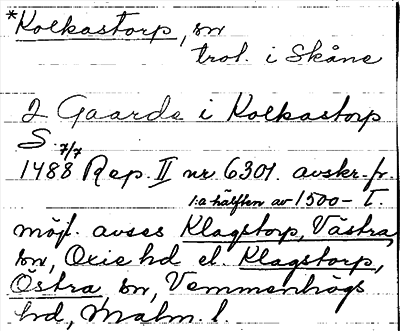 *Kolkastorp, sn
trol. i Skåne
2 Gaarde i Kolkastorp
S. 7/7
1488 Rep. II nr 6301. avskr. fr.
1:a hälften av 1500-t.
möjl. avses Klagstorp, Västra
sn, Oxie hd el. Klagstorp,
Östra, sn, Vemmenhögs
hd, Malm. l.